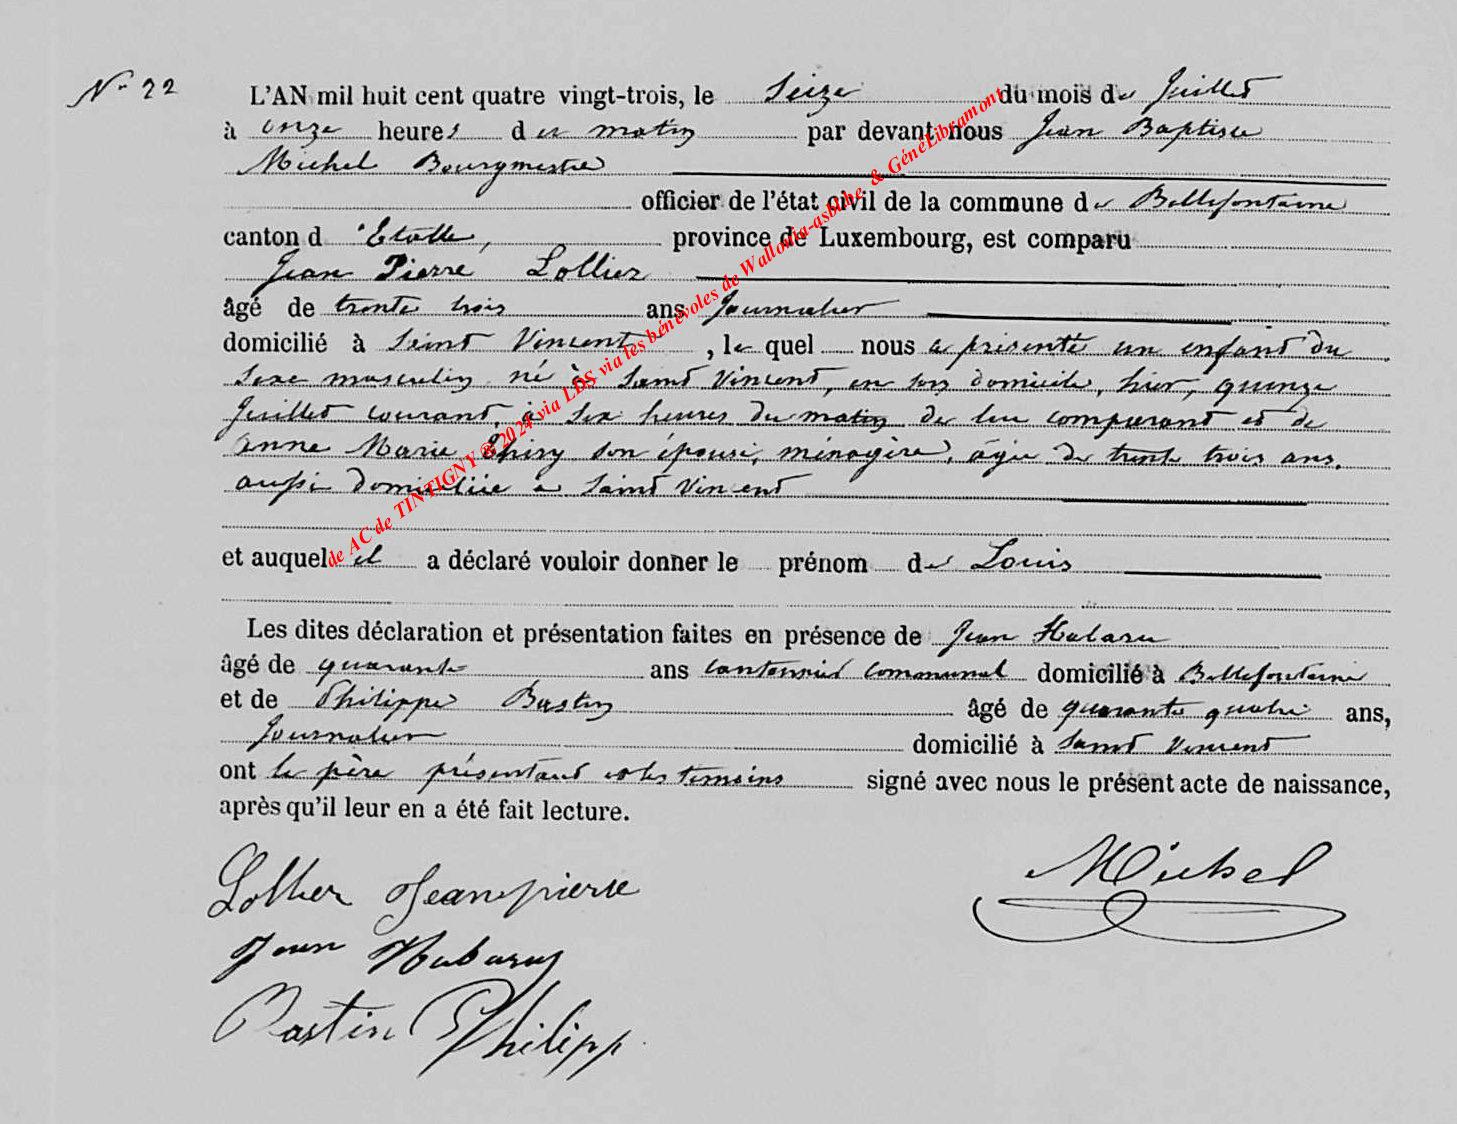 N° 22
L'AN mil huit cent quatre vingt-trois, le Seize du mois de Juillet
à onze heures du matin par devant nous Jean Baptiste
Michel Bourgmestre
officier de l'état civil de la commune de Bellefontaine
canton d'Etalle, province de Luxembourg, est comparu
Jean Pierre Lollier
âgé de trente trois ans Journalier
domicilié à Saint Vincent, le quel nous a présenté un enfant du
sexe masculin né à Saint Vincent, en son domicile, hier, quinze
Juillet courant, à six heures du matin de lui comparant et de
Anne Marie Thiry son épouse, ménagère, âgée de trente trois ans,
aussi domiciliée à Saint Vincent
et auquel il a déclaré vouloir donner le prénom de Louis
Les dites déclaration et présentation faites en présence de Jean
âgé de quarante ans cantonnier communal domicilié à Bellefontaine
et de Philippe Bastin âgé de quarante quatre ans,
Journalier domicilié à Saint Vincent
ont le père présentant et les témoins signé avec nous le présent acte de naissance,
après qu'il leur en a été fait lecture.
Lollier Jeanpierre
Michel
Jean
Bastin Philipp
de AC de TINTIGNY ©2024 via LDS via les bénévoles de Wallonia-asbl.be & GénéLibramont